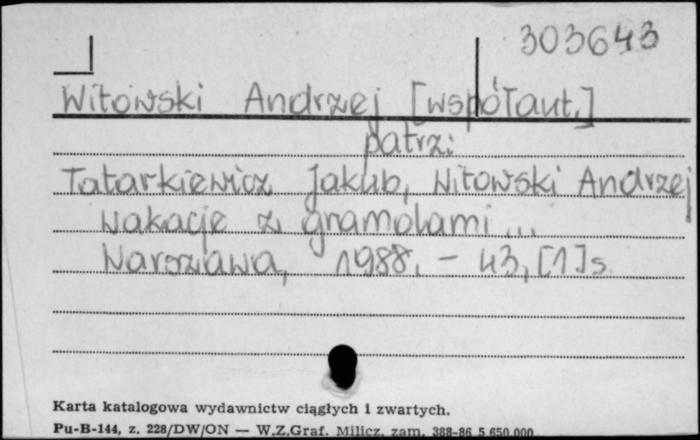 303643
Witowski Andrzej [współaut.]
patrz:
Tatarkiewicz Jakub, Witowski Andrzej
Wakacje z gramolami...
Warszawa, 1988. - 43, [1] s.
Karta katalogowa wydawnictw ciągłych i zwartych.
Pu-B-144, z. 228/DW/ON — W.Z.Graf. Milicz, zam. 388-86 5 650 000